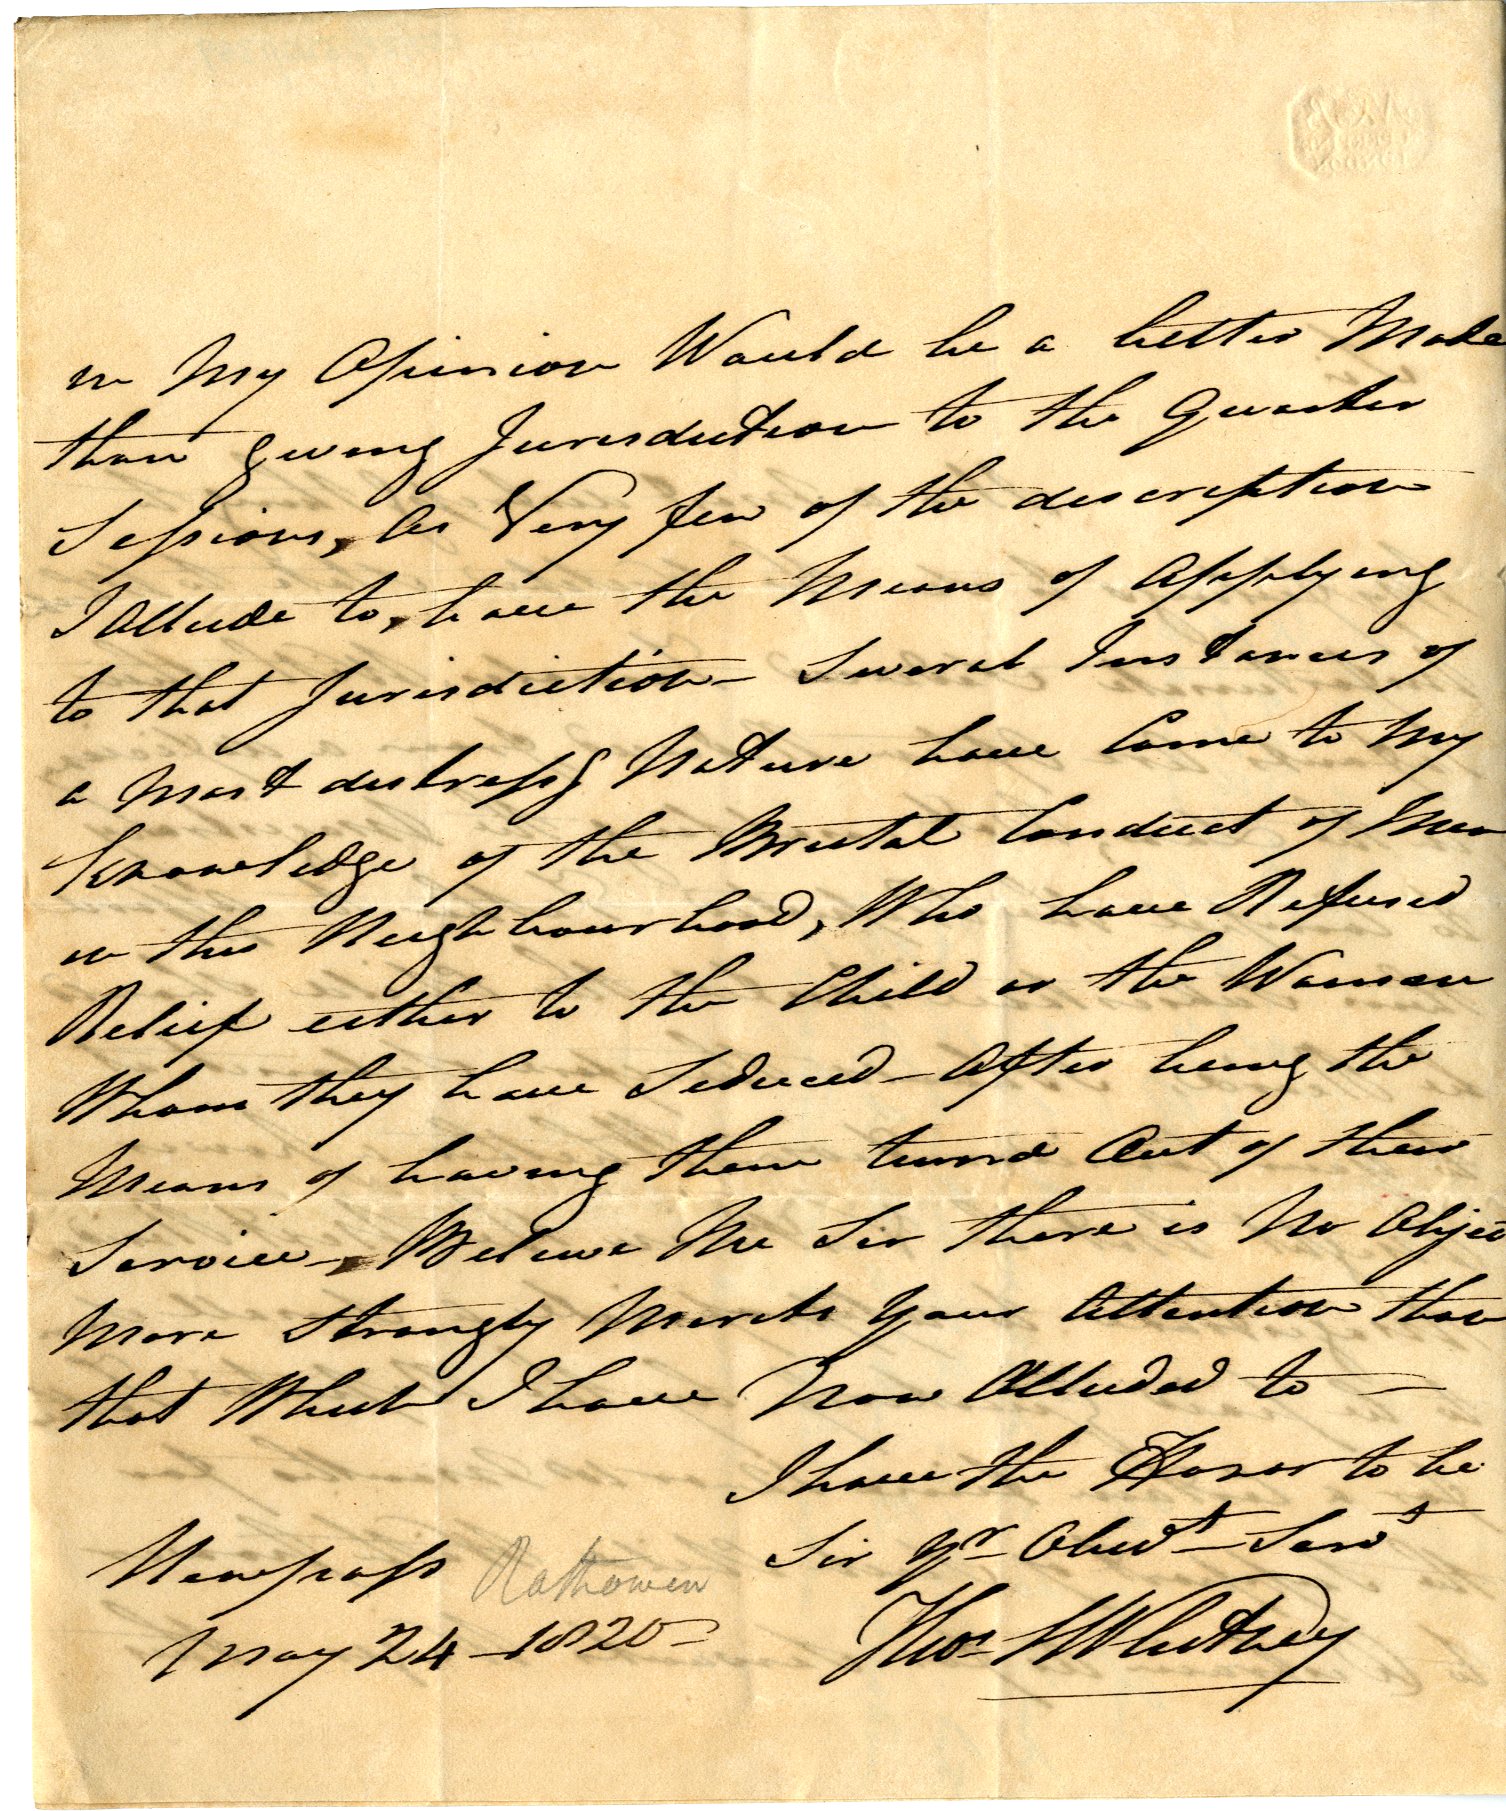 in My Opinion Would be a better Mode
than giving Jurisdiction to the Quarter
Sessions, As Very few of the description
I Allude to, have the Means of Applying
to that Jurisdiction - Several Instances of
a Most distressg Nature have Come to My
Knowledge of the Brutal Conduct of Men
in this Neighbourhood, Who have Refused
Relief either to the Child or the Woman
Whom they have Seduced - After being the
Means of having them turnd Out of their
Service - Believe Me Sir there is No Object
More strongly Merits Your Attention than
that Which I have Now Alluded to -
I have the Honor to be
Sir Yr Obedt Servt
Thos H Whitney
Newpass Rathowen
May 24 - 1820 -